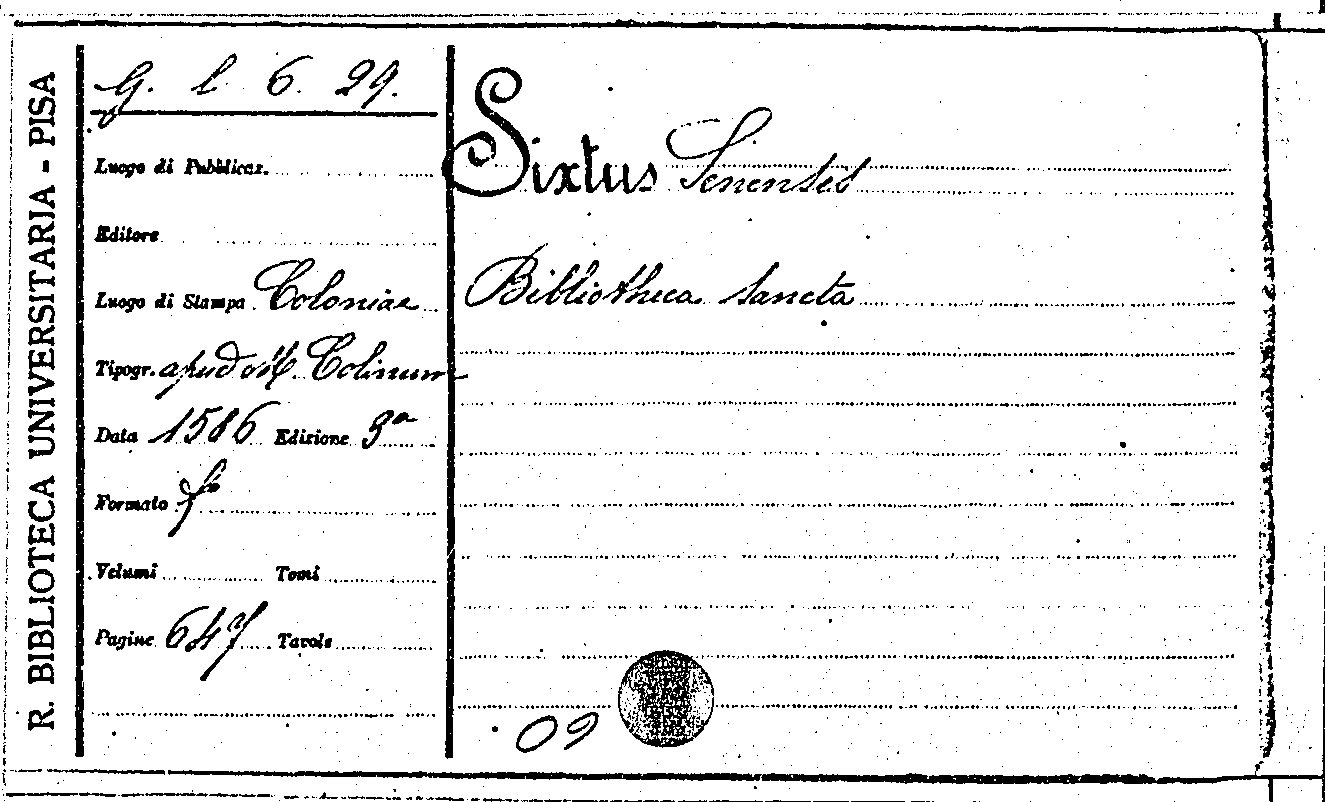 R. BIBLIOTECA UNIVERSITARIA - PISA
G. l. 6. 29.
Luogo di Pubblicaz.
Editore
Luogo di Stampa Coloniae
Tipogr. apud M. Colinum
Data 1586 Edizione 3ª
Formato fº
Volumi Tomi
Pagine 647 Tavole
Sixtus Senenses
Bibliotheca sancta
09